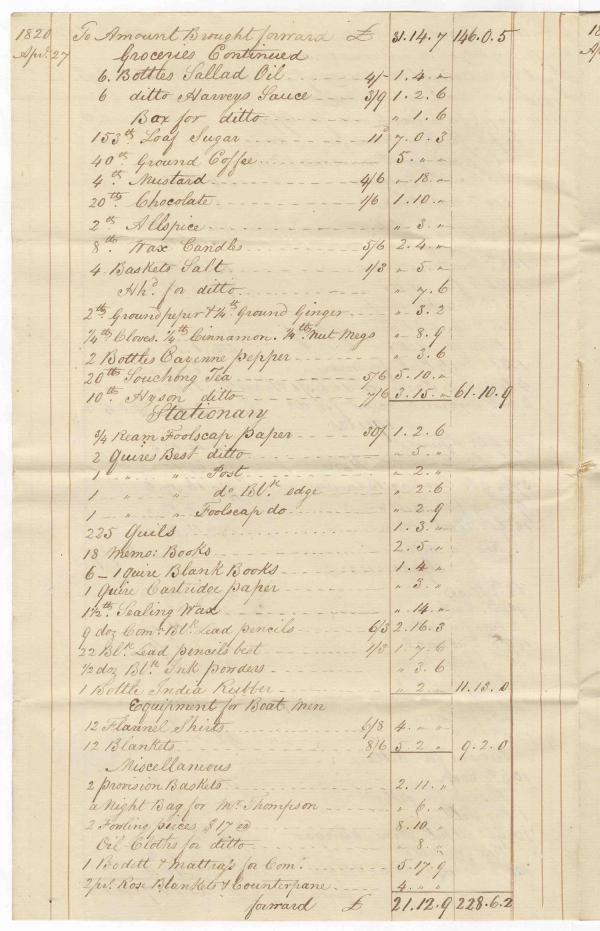 1820 To Amount Brought forward £ 31.14.7 146.0.5
Apr. 27 Groceries Continued
6. Bottles Sallad Oil 4/- 1.4.〃
6 ditto Harveys Sauce 3/9 1.2.6
Box for ditto 〃 1.6
153th Loaf Sugar 11d 7.0.3
40th Ground Coffee 5.〃.〃
4th Mustard 4/6 〃 18.〃
20th Chocolate 1/6 1.10.〃
2th Allspice 〃 3.〃
8th Wax Candles 5/6 2.4.〃
4 Baskets Salt 1/3 〃 5.〃
Hhd for ditto 〃 7.6
2th Ground peper & 1/4th Ground Ginger 〃 3.2
1/4th Cloves. 1/4th Cinnamon. 1/4th Nut Megs 〃 8.9
2 Bottles Cayenne pepper 〃 3.6
20th Souchong Tea 5/6 5.10.〃
10th Hyson ditto 7/6 3.15.〃 61.10.9
Stationary
3/4 Ream Foolscap paper 30/ 1.2.6
2 Quires Best ditto 〃 5.〃
1 〃 〃 Post 〃 2.〃
1 〃 〃 do Blk edge 〃 2.6
1 〃 〃 Foolscap do 〃 2.9
225 Quils 1.3.〃
18 Memo: Books 2.5.〃
6 – 1 Quire Blank Books 1.4.〃
1 Quire Cartridge paper 〃 3.〃
1 1/2th Sealing Wax 〃 14.〃
9 doz Com: Blk Lead pencils 6/3 2.16.3
22 Blk Lead pencils best 1/3 1.7.6
1/2 doz Blk Ink powders 〃 3.6
1 Bottle India Rubber 〃 2.〃 11.13.0
Equipment for Boat Men
12 Flannel Shirts 6/8 4.〃.〃
12 Blankets 8/6 5.2.〃 9.2.0
Miscellaneous
2 provision Baskets 2.11.〃
a Night Bag for Mr Thompson 〃 6.〃
2 Fowling pieces $17 8.10.〃
Oil Cloths for ditto 〃 8.〃
1 Bedstt & Mattrass for Com: 5.17.9
2 pr. Rose Blankets & Counterpane 4.〃.〃
forward £ 21.12.9 228.6.2